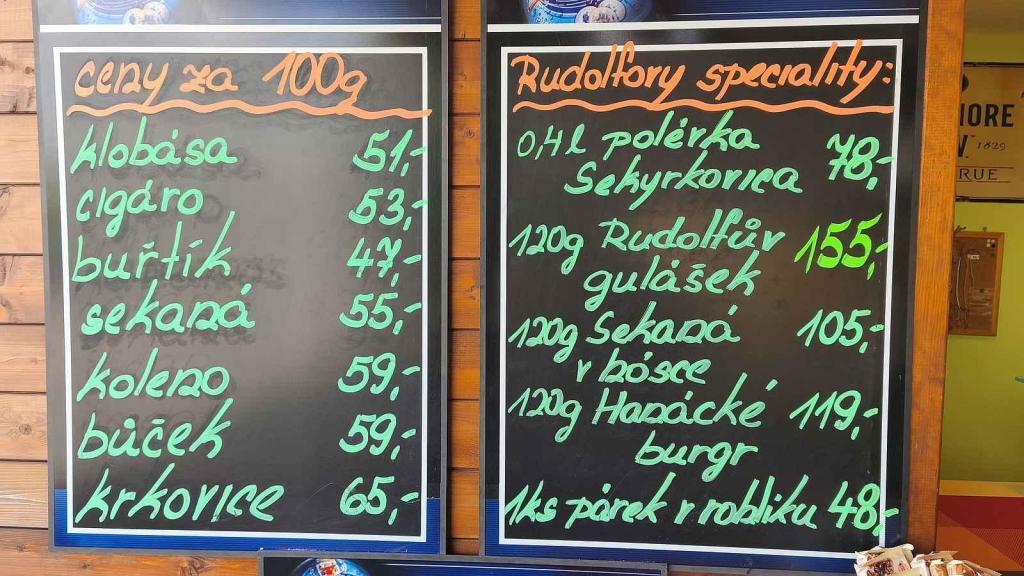 ceny za 100g
klobása 51,-
cigáro 53,-
buřtík 47,-
sekaná 55,-
koleno 59,-
bůček 59,-
krkovice 65,-
Rudolfovy speciality:
0,4l polévka 78,-
Sekyrkovica
120g Rudolfův 155,-
gulášek
120g Sekaná 105,-
v bósce
120g Hanácké 119,-
burgr
1ks párek v rohlíku 48,-
MORE
1829
RUE